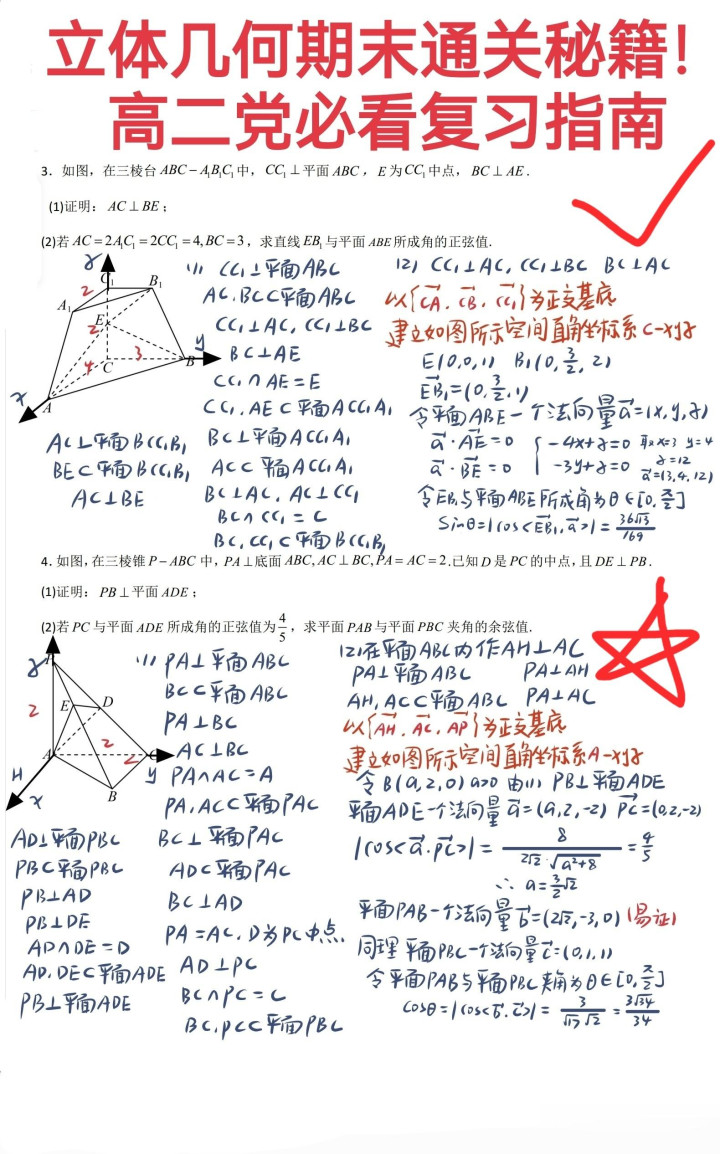 立体几何期末通关秘籍!
高二党必看复习指南
3．如图，在三棱台 ABC－A₁B₁C₁ 中，CC₁⊥平面 ABC，E 为 CC₁ 中点，BC⊥AE．
(1)证明：AC⊥BE；
(2)若 AC=2A₁C₁=2CC₁=4,BC=3，求直线 EB₁ 与平面 ABE 所成角的正弦值.
z
C₁
B₁
2
A₁
E
2
y
4
C
3
B
x
A
(1) CC₁⊥平面ABC
AC,BC⊂平面ABC
CC₁⊥AC, CC₁⊥BC
BC⊥AE
CC₁∩AE=E
CC₁,AE⊂平面ACC₁A₁
BC⊥平面ACC₁A₁
AC⊂平面ACC₁A₁
BC⊥AC, AC⊥CC₁
BC∩CC₁=C
BC,CC₁⊂平面BCC₁B₁
AC⊥平面BCC₁B₁
BE⊂平面BCC₁B₁
AC⊥BE
(2) CC₁⊥AC, CC₁⊥BC BC⊥AC
以{CA, CB, CC₁}为正交基底
建立如图所示空间直角坐标系C-xyz
E(0,0,1) B₁(0,3/2,2)
EB₁=(0,3/2,1)
令平面ABE一个法向量a=(x,y,z)
a·AE=0 { -4x+z=0 取x=3 y=4
a·BE=0 -3y+z=0 z=12
a=(3,4,12)
令EB₁与平面ABE所成角为θ∈[0,π/2]
Sinθ=|cos<EB₁,a>|=36√13/169
4. 如图,在三棱锥 P－ABC 中, PA⊥底面 ABC, AC⊥BC, PA=AC=2.已知 D 是 PC 的中点,且 DE⊥PB．
(1)证明：PB⊥平面 ADE；
(2)若 PC 与平面 ADE 所成角的正弦值为4/5，求平面 PAB 与平面 PBC 夹角的余弦值.
z
2
E
D
2
A
C
2
H
y
B
x
(1) PA⊥平面ABC
BC⊂平面ABC
PA⊥BC
AC⊥BC
PA∩AC=A
PA,AC⊂平面PAC
BC⊥平面PAC
AD⊂平面PAC
BC⊥AD
PA=AC,D为PC中点,
AD⊥PC
BC∩PC=C
BC,PC⊂平面PBC
AD⊥平面PBC
PB⊂平面PBC
PB⊥AD
PB⊥DE
AD∩DE=D
AD,DE⊂平面ADE
PB⊥平面ADE
(2)在平面ABC内作AH⊥AC
PA⊥平面ABC PA⊥AH
AH,AC⊂平面ABC PA⊥AC
以{AH, AC, AP}为正交基底
建立如图所示空间直角坐标系A-xyz
令B(a,2,0) a>0 由(1) PB⊥平面ADE
平面ADE一个法向量a=(a,2,-2) PC=(0,2,-2)
|cos<a,PC>|=8/(2√2·√(a²+8))=4/5
∴ a=3/2√2
平面PAB一个法向量b=(2√2,-3,0) (易证)
同理 平面PBC一个法向量c=(0,1,1)
令平面PAB与平面PBC夹角为θ∈[0,π/2]
cosθ=|cos<b,c>|=3/(√17√2)=3√34/34